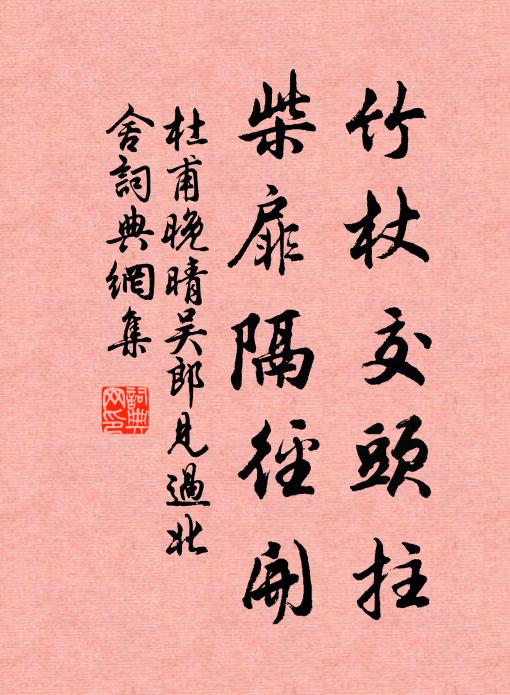 竹杖交頭拄
柴扉隔徑開
杜甫晚晴吴郎見過北
舍詞典網集
詞典
网印